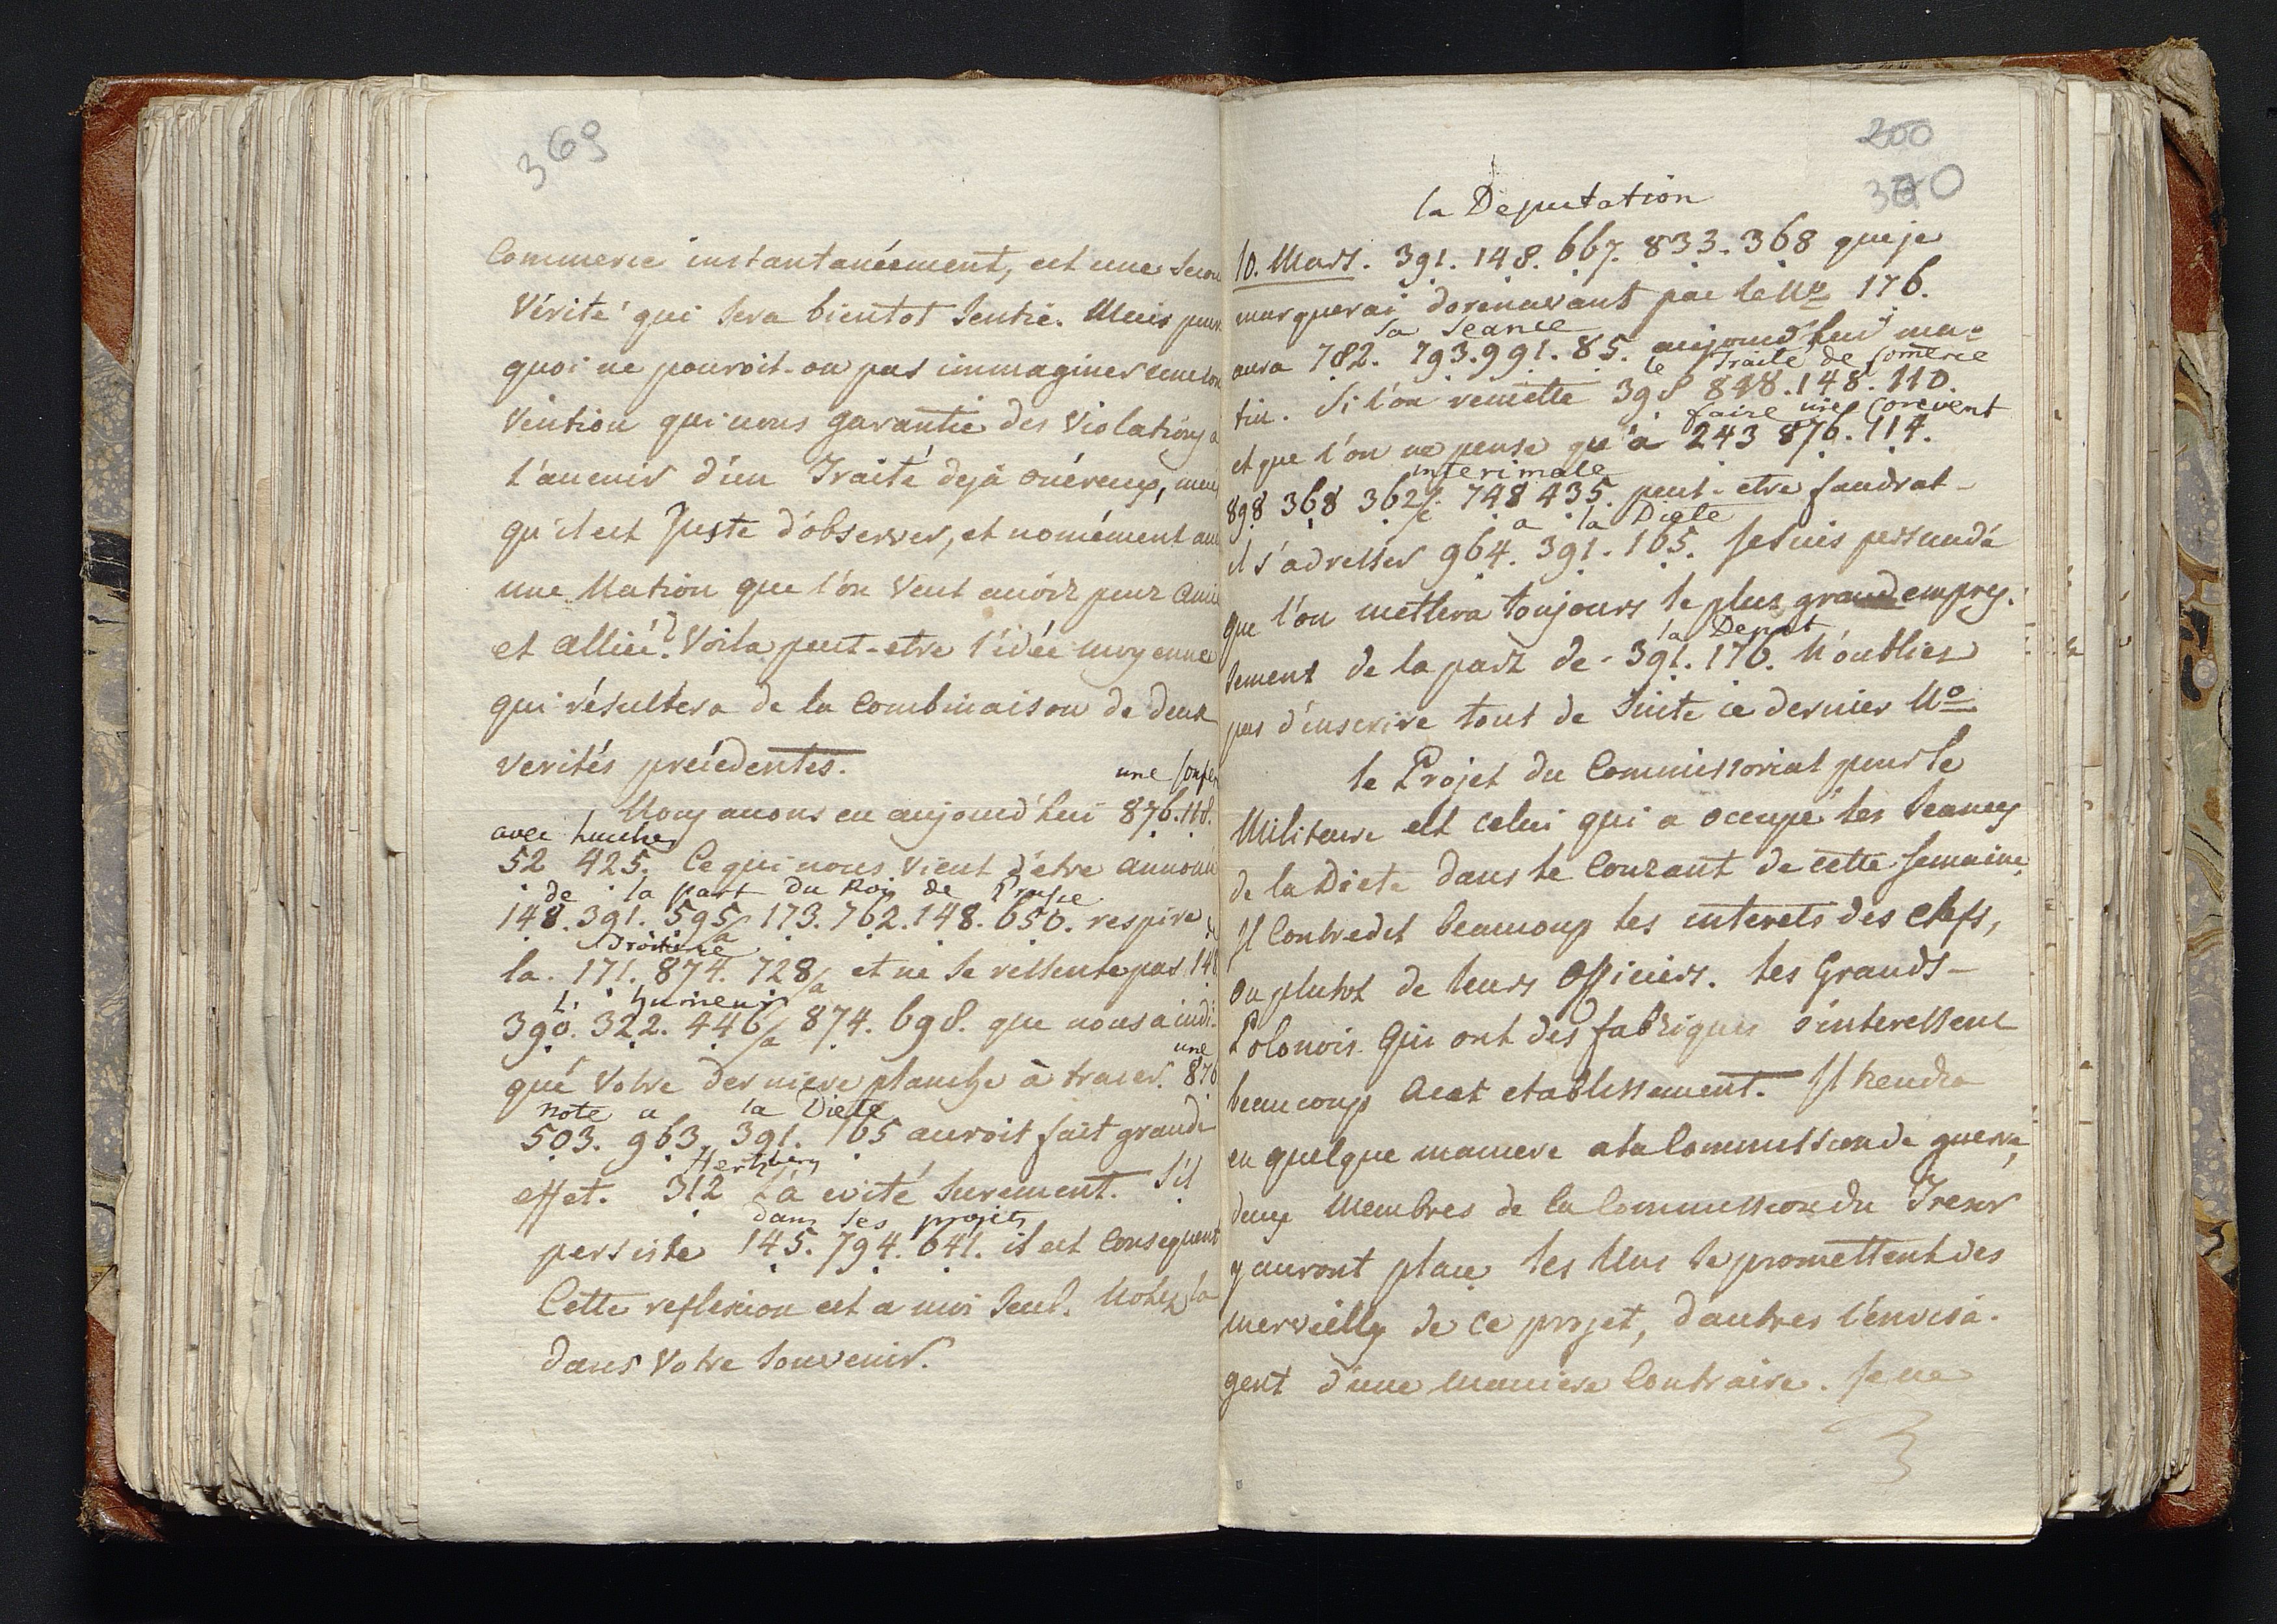 369
Commerce instantanéement, est une Secon
Vérité qui Sera bientot Sentie. Mais pour
quoi ne pouroit-on pas immaginer une con
Vention qui nous garantie des Violations a
l'avenir d'un Traité deja onéreux, mais
qu'il est Juste d'observer, et nomément avec
une Nation que l'on Veut avoir pour Amie
et Alliée? Voila peut-etre l'idée moyenne
qui résultera de la Combinaison de deux
verités precédentes.
une Confer
Nous avons eu aujourd'hui 876. 118.
avec Lucches
52 425. Ce qui nous Vient d'etre Annoncé
de la part du Roy de Prusse
148. 391. 595/a 173. 762. 148. 650. respire de
Droiture
la. 171. 874. 728/a et ne Se ressente pas 148
l' humeur
390. 322. 446/a 874. 698. que nous a indi-
une
qué Votre derniere planche à tracer. 876
note a la Diete
503. 963. 391. 165 auroit fait grande
Hertzberg
effet. 312 l'a evité Surement. S'il
dans ses projets
persiste 145. 794. 641. il est Consequent
Cette reflexion est a moi Seul. Notez la
dans Votre Souvenir.
200
370
la Deputation
10. Mars. 391. 148. 667. 833. 368 que je
marquerai dorenavant par le No 176.
sa Seance
aura 782. 793. 991. 85. aujourd'hui ma-
le Traité de Comerce
tin. Si l'on remette 398 848. 148. 110.
faire une Convent
et que l'on ne pense qu'à 243 876. 114.
interimale
898 368 362/c 748 435. peut-etre faudrat-
a la Diete
il s'adresser 964. 391. 165. Je suis persuadé
que l'on mettera toujours le plus grand empres-
la Deput
sement de la part de 391. 176. N'oubliez
pas d'inscrire tout de Suite ce dernier No
le Projet du Commissoriat pour le
Militaire est celui qui a occupé les Seances
de la Diete dans le Courant de cette Semaine,
Il Contredit beaucoup les interets des Chefs,
ou plutot de leurs Officiers. les Grands-
Polonois qui ont des fabriques s'interessent
beaucoup a cet etablissement. Il tiendra
en quelque maniere a la Commission de guerre,
deux Membres de la Commission du Tresor
y auront place les Uns Se promettent des
merveilles de ce projet, d'autres l'envisa-
gent d'une Maniere Contraire. Je ne